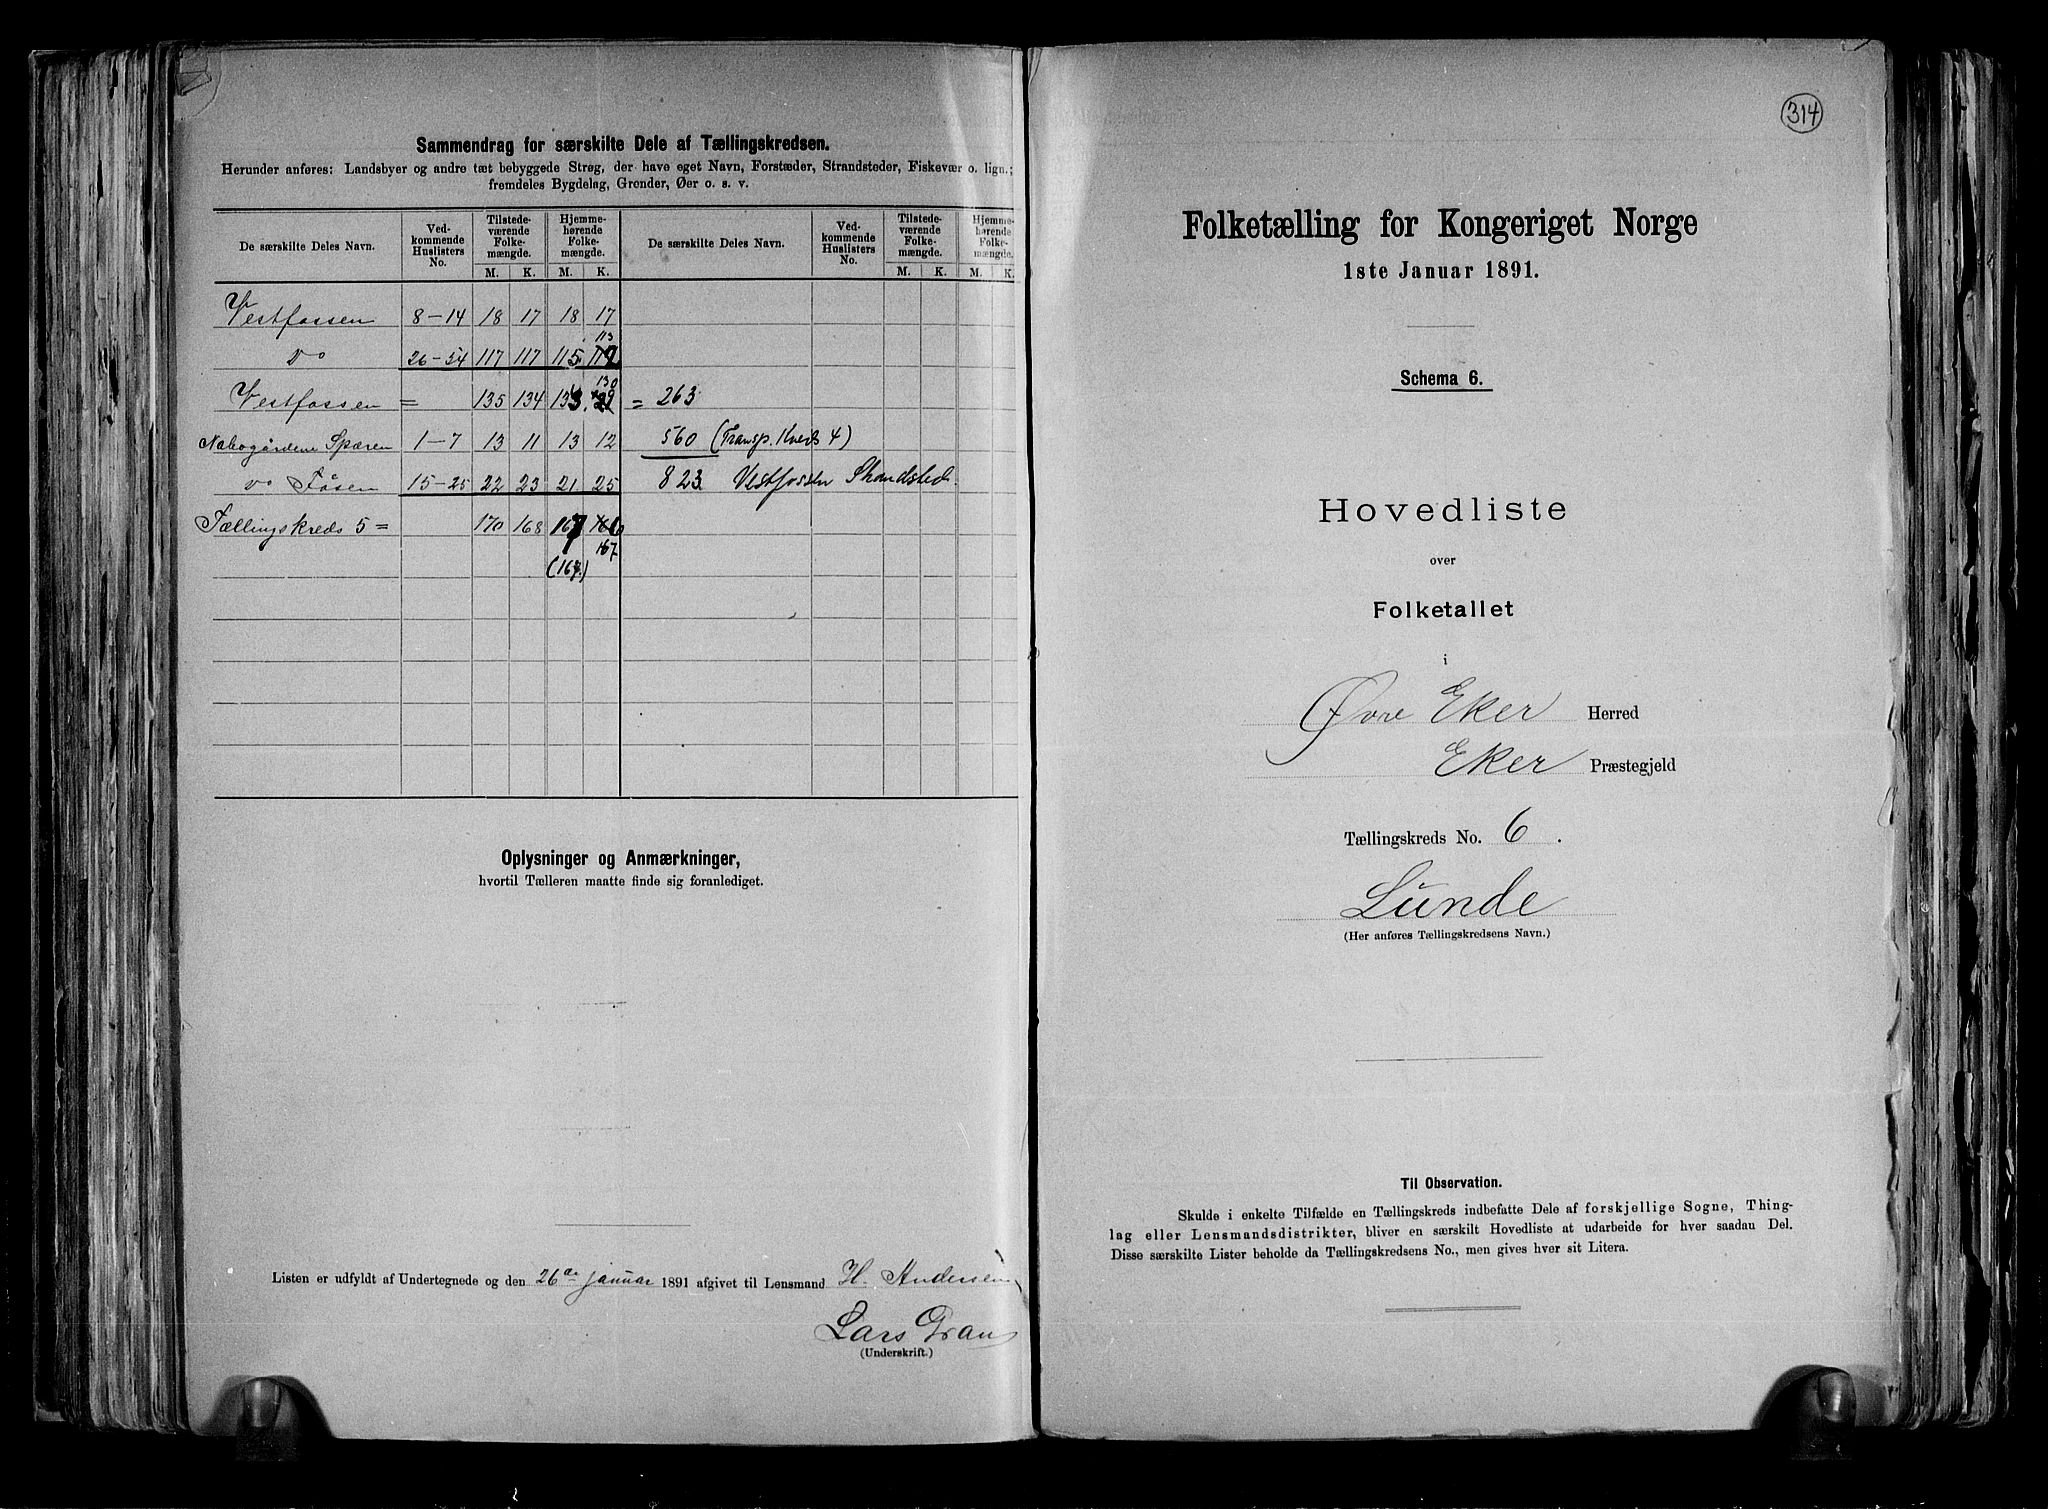 Sammendrag for særskilte Dele af Tællingskredsen.
Herunder anføres: Landsbyer og andre tæt bebyggede Strøg, der have eget Navn, Forstæder, Strandsteder, Fiskevær o. lign.;
fremdeles Bygdelag, Grender, Øer o. s. v.
De særskilte Deles Navn. Ved-kommende Huslisters No. Tilstede-værende Folke-mængde. Hjemme-hørende Folke-mængde. De særskilte Deles Navn. Ved-kommende Huslisters No. Tilstede-værende Folke-mængde. Hjemme-hørende Folke-mængde.
M. K. M. K. M. K. M. K.
Vestfossen 8-14 18 17 18 17
113
Do 26-54 117 117 115
130
Vestfossen = 135 134 = 263
Nabogårdene Spæren 1-7 13 11 13 12 560 (Transp. Kreds 4)
Do Fåsen 15-25 22 23 21 25 823 Vestfossen Strandsted.
Tællingskreds 5 = 170 168
167
(167.)
Oplysninger og Anmærkninger,
hvortil Tælleren maatte finde sig foranlediget.
Listen er udfyldt af Undertegnede og den 26de januar 1891 afgivet til Lensmand H. Andersen
Lars Gran
(Underskrift.)
314
Folketælling for Kongeriget Norge
1ste Januar 1891.
Schema 6.
Hovedliste
over
Folketallet
i
Øvre Eker Herred
Eker Præstegjeld
Tællingskreds No. 6.
Lunde
(Her anføres Tællingskredsens Navn.)
Til Observation.
Skulde i enkelte Tilfælde en Tællingskreds indbefatte Dele af forskjellige Sogne, Thing-
lag eller Lensmandsdistrikter, bliver en særskilt Hovedliste at udarbeide for hver saadan Del.
Disse særskilte Lister beholde da Tællingskredsens No., men gives hver sit Litera.